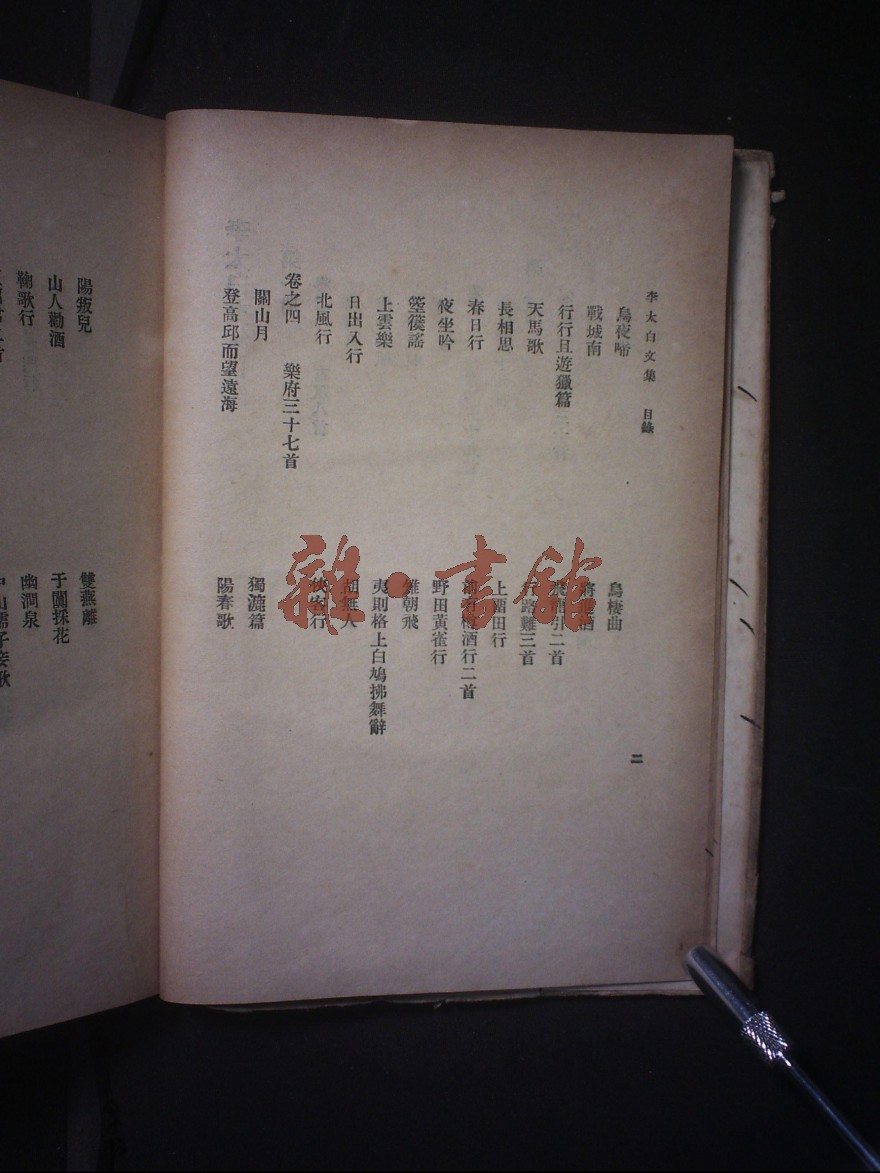 李太白文集 目錄
二
烏夜啼
烏棲曲
戰城南
將進酒
行行且遊獵篇
飛龍引二首
天馬歌
行路難三首
長相思
上留田行
春日行
前有樽酒行二首
夜坐吟
野田黃雀行
箜篌謠
雉朝飛
上雲樂
夷則格上白鳩拂舞辭
日出入行
胡無人
北風行
俠客行
卷之四 樂府三十七首
關山月
獨漉篇
登高邱而望遠海
陽春歌
陽叛兒
雙燕離
山人勸酒
于闐採花
鞠歌行
幽澗泉
中山孺子妾歌
雜·書館